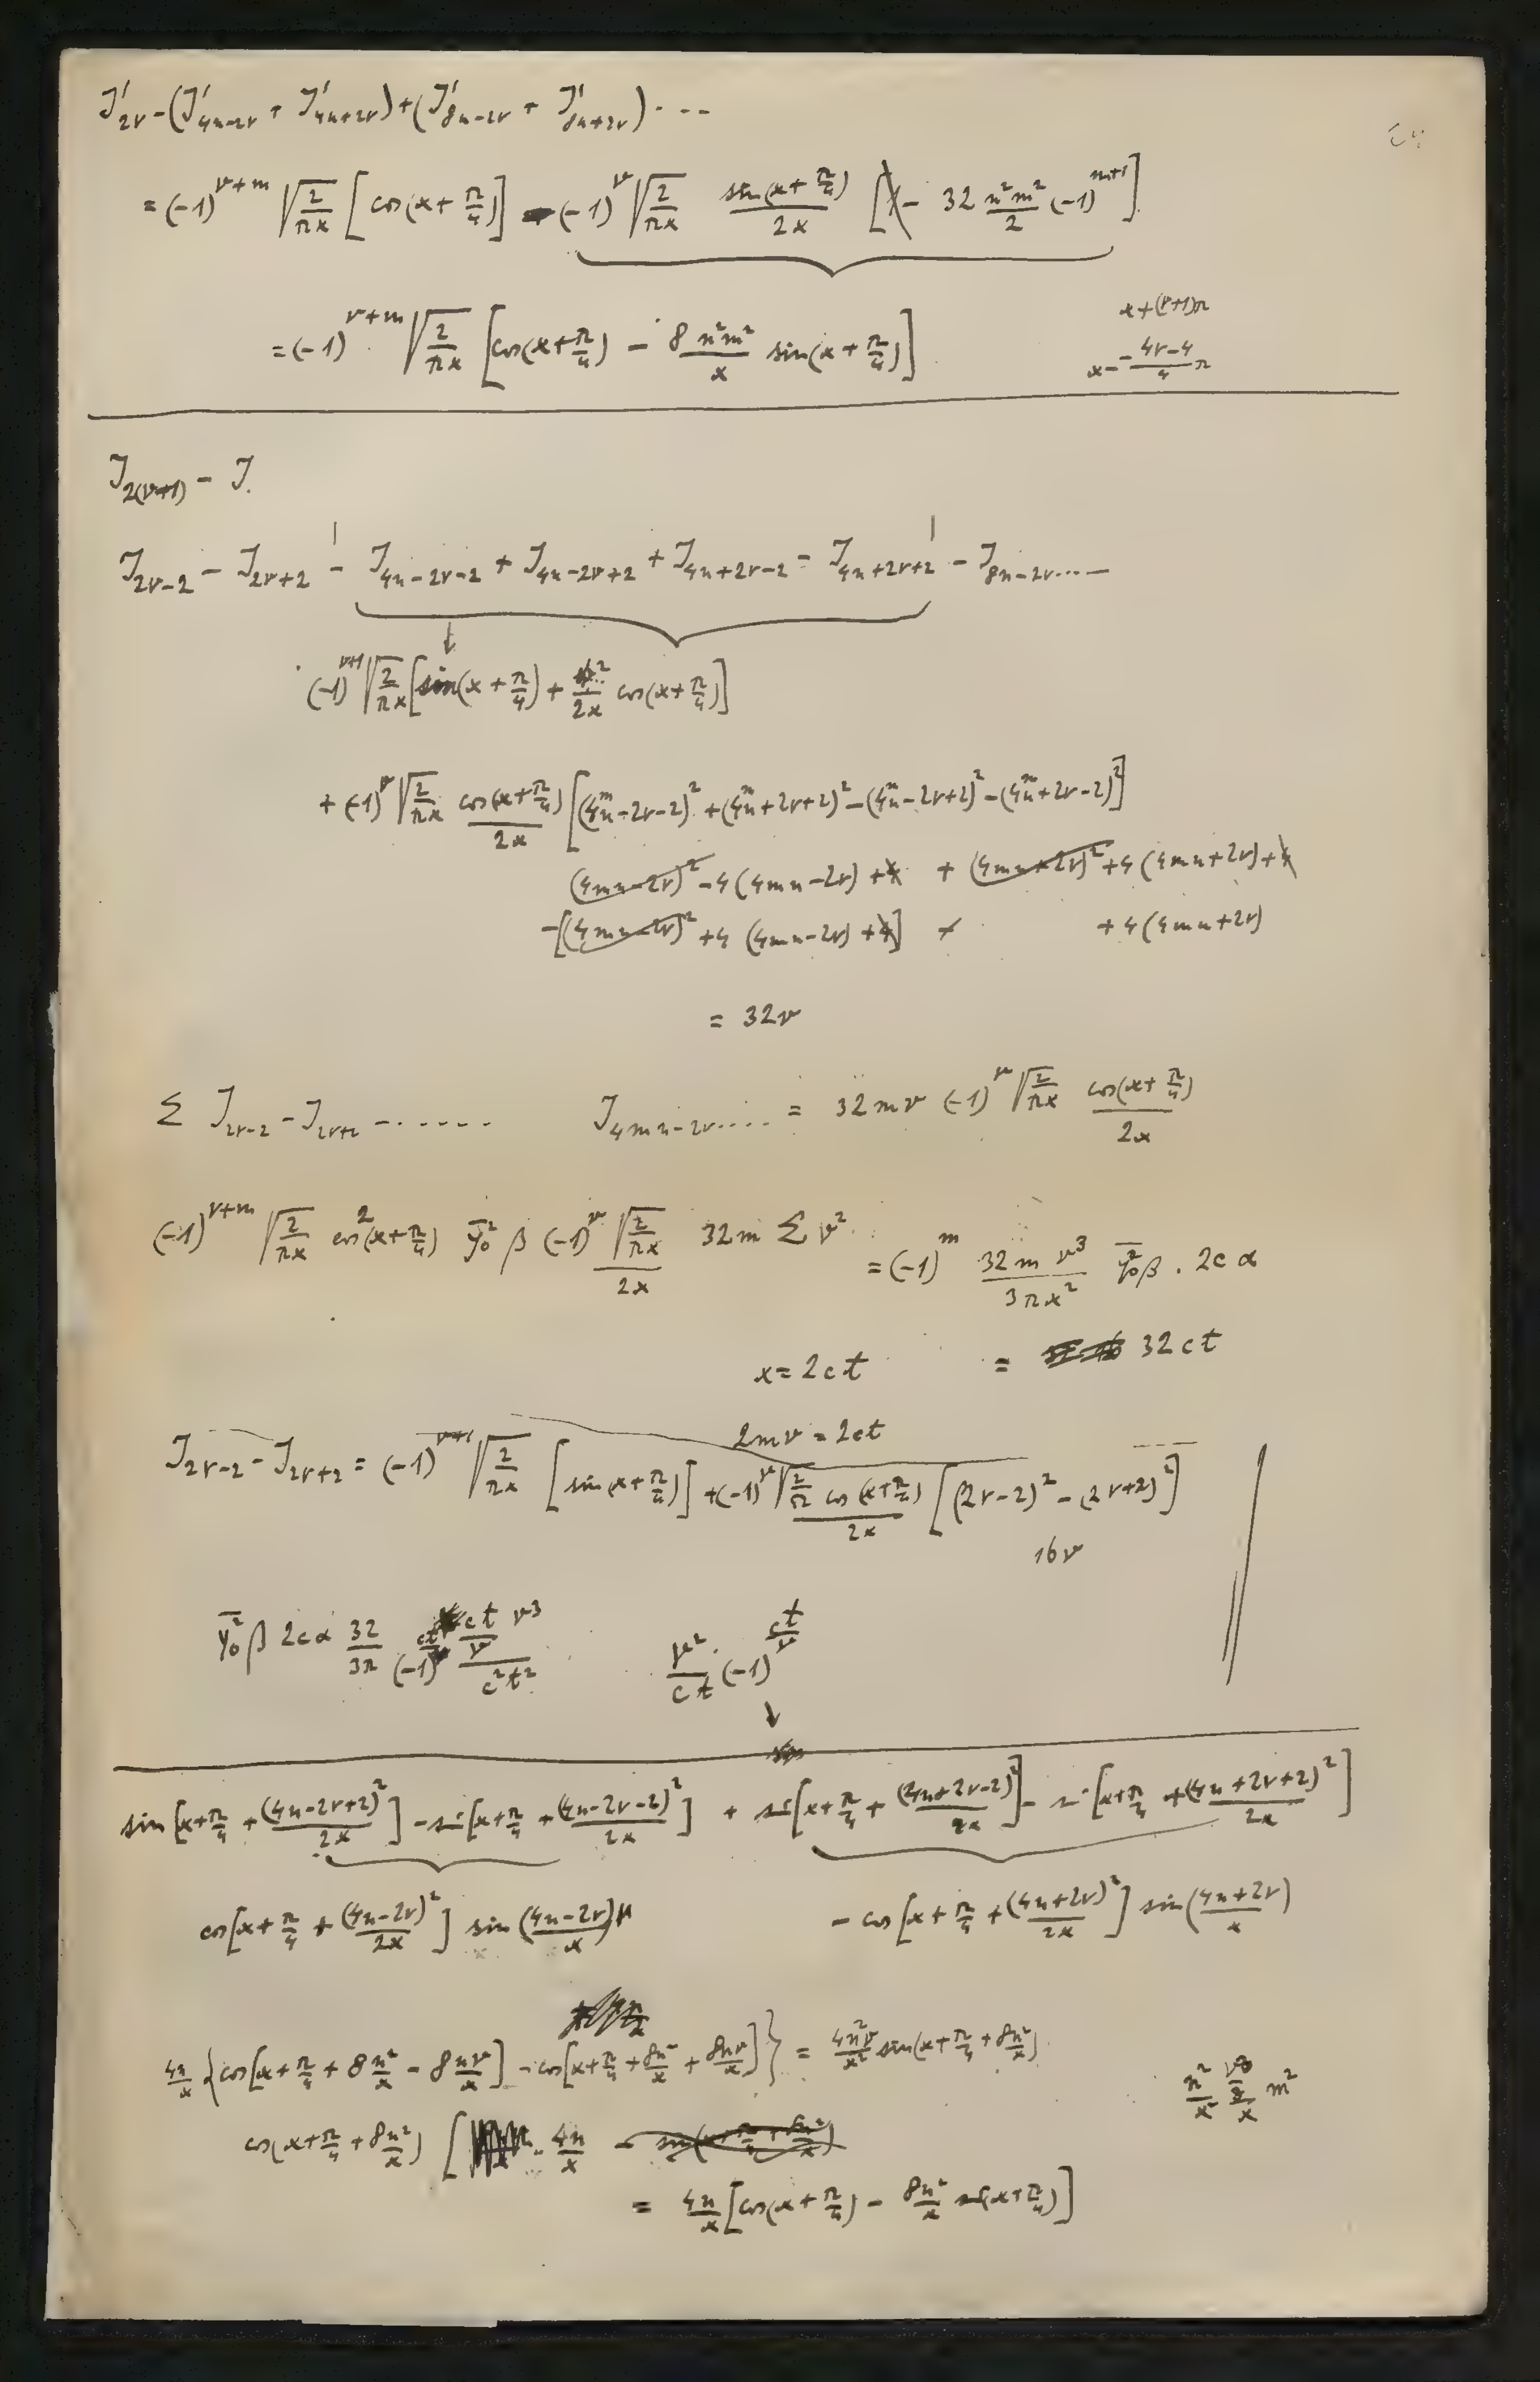 J'_{2ν} - (J'_{4n-2ν} + J'_{4n+2ν}) + (J'_{8n-2ν} + J'_{8n+2ν}) ....
= (-1)^{ν+m} √(2/πx) [cos(x + π/4)] - (-1)^ν √(2/πx) sin(x + π/4)/2x [ - 32 n²m²/2 (-1)^{m+1}]
= (-1)^{ν+m} √(2/πx) [cos(x + π/4) - 8n²m²/x sin(x + π/4)]
x + (ν+1)π
x - (4ν-4)/4 π
J_{2(ν+1)} - J.
J_{2ν-2} - J_{2ν+2} | - J_{4n-2ν-2} + J_{4n-2ν+2} + J_{4n+2ν-2} - J_{4n+2ν+2} | - J_{8n-2ν}....
(-1)^{ν+1} √(2/πx) [sin(x + π/4) + 4ν²/2x cos(x + π/4)]
+ (-1)^ν √(2/πx) cos(x + π/4)/2x [(4mn-2ν-2)² + (4mn+2ν+2)² - (4mn-2ν+2)² - (4mn+2ν-2)²]
(4mn-2ν)² - 4(4mn-2ν) + 4 + (4mn+2ν)² + 4(4mn+2ν) + 4
-[(4mn-2ν)² + 4(4mn-2ν) + 4] + 4(4mn+2ν)
= 32ν
Σ J_{2ν-2} - J_{2ν+2} - ...... J_{4mn-2ν}.... = 32mν (-1)^ν √(2/πx) cos(x + π/4)/2x
(-1)^{ν+m} √(2/πx) cos²(x + π/4) y̅₀² β (-1)^ν √(2/πx)/2x 32m Σ ν² = (-1)^m 32mν³/3πx² y̅₀² β . 2cα
x = 2ct = 32ct
2mν = 2ct
J_{2ν-2} - J_{2ν+2} = (-1)^{ν+1} √(2/πx) [sin(x + π/4)] + (-1)^ν √(2/π) cos(x + π/4)/2x [(2ν-2)² - (2ν+2)²]
16ν
y̅₀² β 2cα 32/3π (-1)^{ct/ν} (ct/ν) ν³/c²t² ν²/ct (-1)^{ct/ν}
sin[x + π/4 + (4n-2ν+2)²/2x] - sin[x + π/4 + (4n-2ν-2)²/2x] + sin[x + π/4 + (4n+2ν-2)²/2x] - sin[x + π/4 + (4n+2ν+2)²/2x]
cos[x + π/4 + (4n-2ν)²/2x] sin((4n-2ν)/x) - cos[x + π/4 + (4n+2ν)²/2x] sin((4n+2ν)/x)
4n/x {cos[x + π/4 + 8n²/x - 8nν/x] - cos[x + π/4 + 8n²/x + 8nν/x]} = 4n²ν/x² sin(x + π/4 + 8n²/x)
cos(x + π/4 + 8n²/x) [ 4n/x - sin(x + π/4 + 8n²/x)
= 4n/x [cos(x + π/4) - 8n²/x sin(x + π/4)]